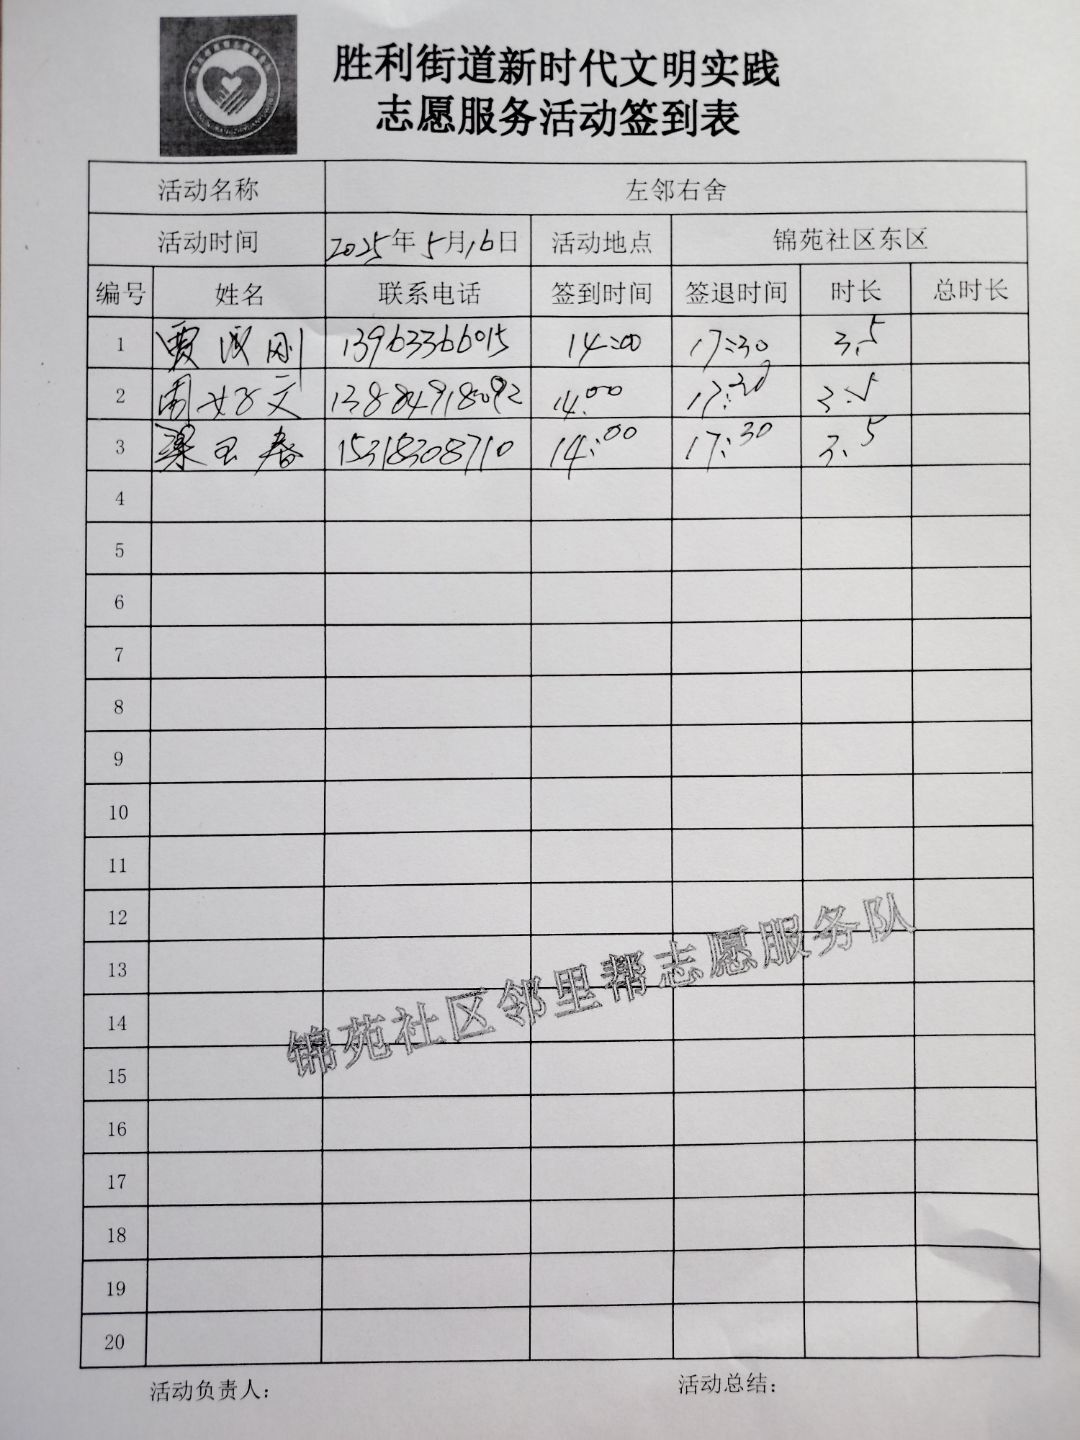 胜利街道新时代文明实践
志愿服务活动签到表
活动名称 左邻右舍
活动时间 2025年5月16日 活动地点 锦苑社区东区
编号 姓名 联系电话 签到时间 签退时间 时长 总时长
1 贾 刚 13963366015 14:00 17:30 3.5
2 周好文 13884918092 14:00 17:30 3.5
3 梁玉春 15318308710 14:00 17:30 3.5
4
5
6
7
8
9
10
11
12
13
14
15
16
17
18
19
20
锦苑社区邻里帮志愿服务队
活动负责人: 活动总结: